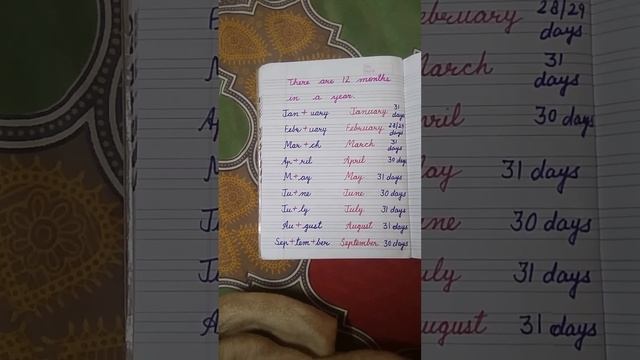 There are 12 months
in a year.
Jan + uary January 31 days
Febr + uary February 28/29 days
Mar + ch March 31 days
Ap + ril April 30 days
M + ay May 31 days
Ju + ne June 30 days
Ju + ly July 31 days
Au + gust August 31 days
Sep + tem + ber September 30 days
ebruary 28/29 days
March 31 days
pril 30 days
ay 31 days
ne 30 days
uly 31 days
ugust 31 days